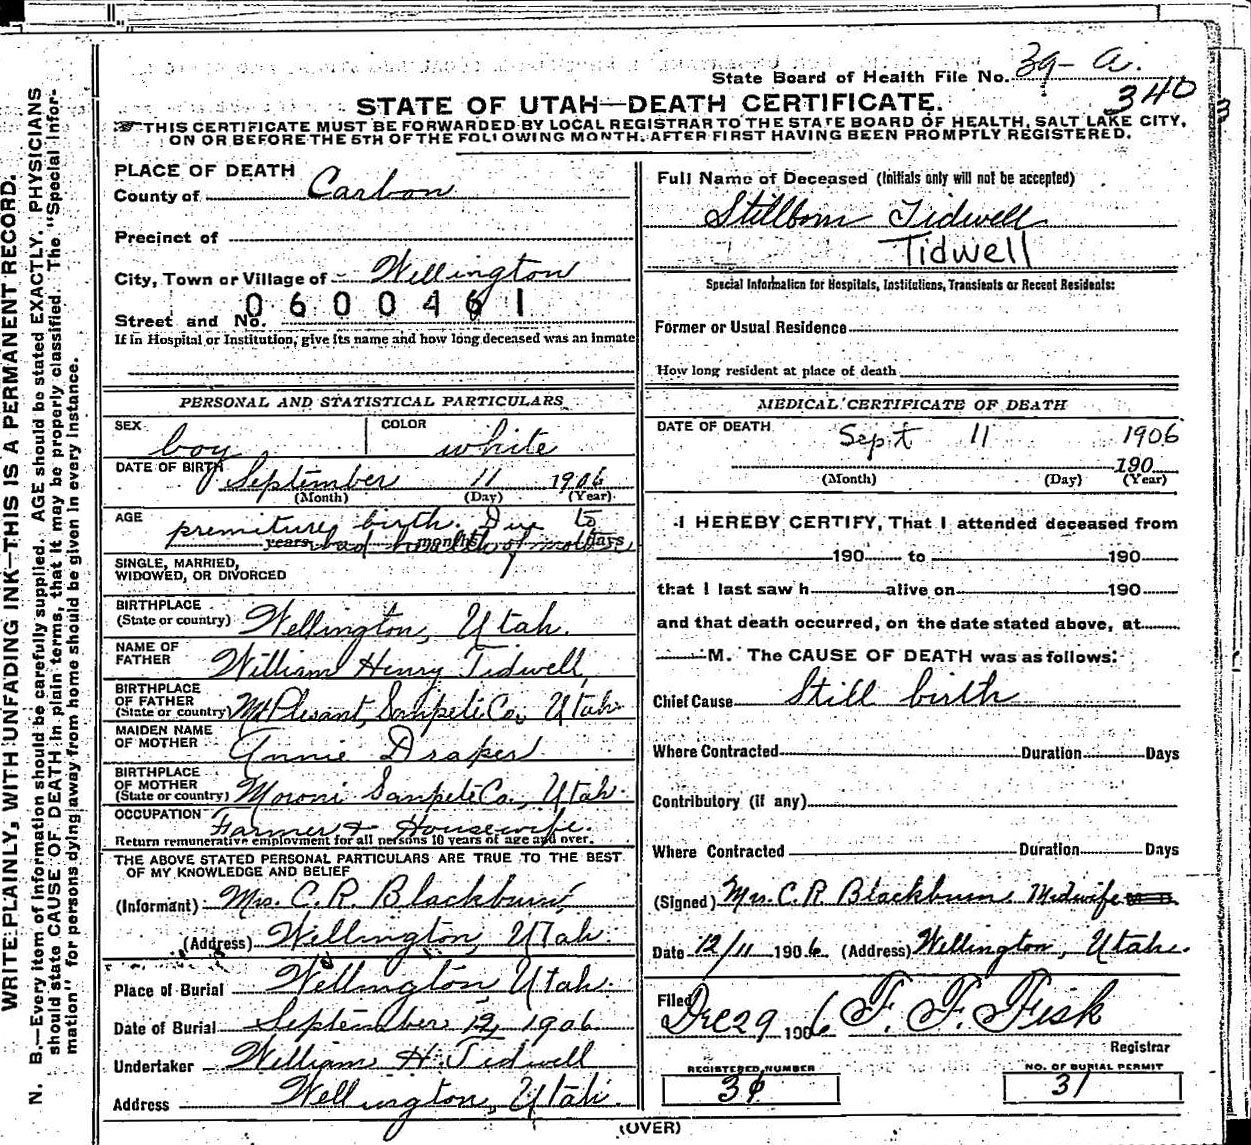 State Board of Health File No. 39- a.
340
STATE OF UTAH—DEATH CERTIFICATE.
THIS CERTIFICATE MUST BE FORWARDED BY LOCAL REGISTRAR TO THE STATE BOARD OF HEALTH, SALT LAKE CITY,
ON OR BEFORE THE 5TH OF THE FOLLOWING MONTH, AFTER FIRST HAVING BEEN PROMPTLY REGISTERED.
WRITE PLAINLY, WITH UNFADING INK—THIS IS A PERMANENT RECORD.
N. B.—Every item of information should be carefully supplied. AGE should be stated EXACTLY. PHYSICIANS
should state CAUSE OF DEATH in plain terms, that it may be properly classified. The "Special Infor-
mation" for persons dying away from home should be given in every instance.
PLACE OF DEATH
County of Carbon
Precinct of
City, Town or Village of Wellington
0600461
Street and No.
If in Hospital or Institution, give its name and how long deceased was an inmate
PERSONAL AND STATISTICAL PARTICULARS
SEX boy COLOR white
DATE OF BIRTH September 11 1906
(Month) (Day) (Year)
AGE premiture birth. Due to
years months days
bad health of mother
SINGLE, MARRIED,
WIDOWED, OR DIVORCED
BIRTHPLACE
(State or country) Wellington, Utah.
NAME OF
FATHER William Henry Tidwell,
BIRTHPLACE
OF FATHER
(State or country) Mt Plesant, Sanpete Co, Utah.
MAIDEN NAME
OF MOTHER Annie Draper
BIRTHPLACE
OF MOTHER
(State or country) Moroni Sanpete Co., Utah.
OCCUPATION Farmer & Housewife.
Return remunerative employment for all persons 10 years of age and over.
THE ABOVE STATED PERSONAL PARTICULARS ARE TRUE TO THE BEST
OF MY KNOWLEDGE AND BELIEF
(Informant) Mrs. C. R. Blackburn
(Address) Wellington, Utah.
Place of Burial Wellington Utah.
Date of Burial September 12, 1906
Undertaker William H. Tidwell
Address Wellington, Utah.
Full Name of Deceased (Initials only will not be accepted)
Stillborn Tidwell
Tidwell
Special Information for Hospitals, Institutions, Transients or Recent Residents:
Former or Usual Residence
How long resident at place of death
MEDICAL CERTIFICATE OF DEATH
DATE OF DEATH Sept 11 1906
190
(Month) (Day) (Year)
I HEREBY CERTIFY, That I attended deceased from
190 to 190
that I last saw h alive on 190
and that death occurred, on the date stated above, at
M. The CAUSE OF DEATH was as follows:
Chief Cause Still birth
Where Contracted Duration Days
Contributory (if any)
Where Contracted Duration Days
(Signed) Mrs. C. R. Blackburn Midwife
Date 12/11 1906 (Address) Wellington, Utah.
Filed Dec 29 1906 F. F. Fisk
Registrar
REGISTERED NUMBER
NO. OF BURIAL PERMIT
31
(OVER)